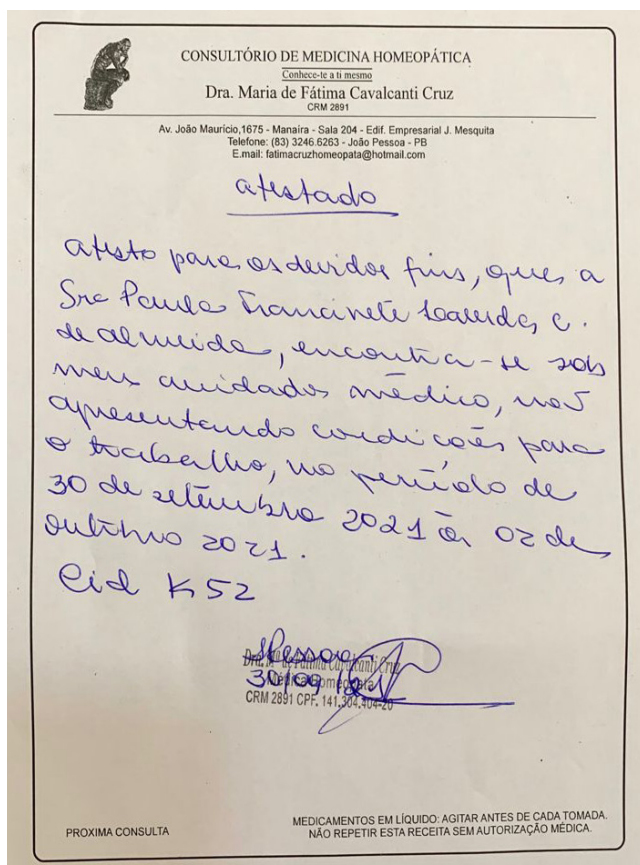 CONSULTÓRIO DE MEDICINA HOMEOPÁTICA
Conhece-te a ti mesmo
Dra. Maria de Fátima Cavalcanti Cruz
CRM 2891
Av. João Maurício,1675 - Manaíra - Sala 204 - Edif. Empresarial J. Mesquita
Telefone: (83) 3246.6263 - João Pessoa - PB
E.mail: fatimacruzhomeopata@hotmail.com
atestado
atesto para os devidos fins, que, a
Sra Paula Francinete C.
de almeida, encontra-se sob
meus cuidados médico, não
apresentando condições para
o trabalho, no período de
30 de setembro 2021 à 02 de
outubro 2021.
Cid K52
JPessoa
Dra. Mª de Fátima Cavalcanti Cruz
30/09/21
Médica Homeopata
CRM 2891 CPF. 141.304.404-20
PROXIMA CONSULTA
MEDICAMENTOS EM LÍQUIDO: AGITAR ANTES DE CADA TOMADA.
NÃO REPETIR ESTA RECEITA SEM AUTORIZAÇÃO MÉDICA.